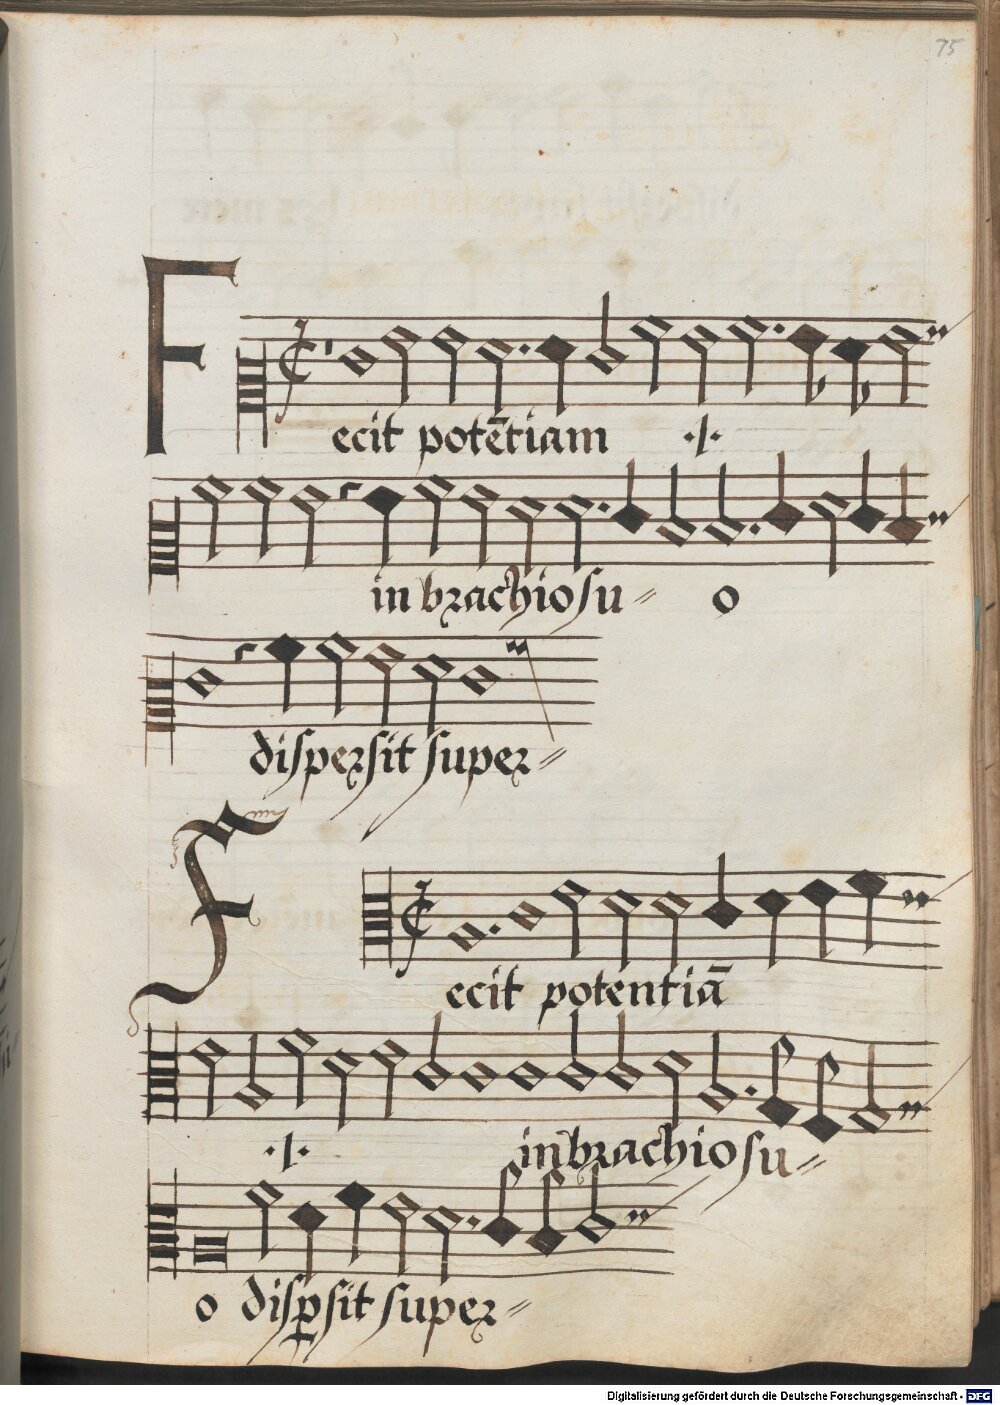 75
Fecit potētiam ·/·
in brachio su= o
dispersit super=
Fecit potentiā
·/· in brachio su=
o disp̱sit super=
Digitalisierung gefördert durch die Deutsche Forschungsgemeinschaft - DFG